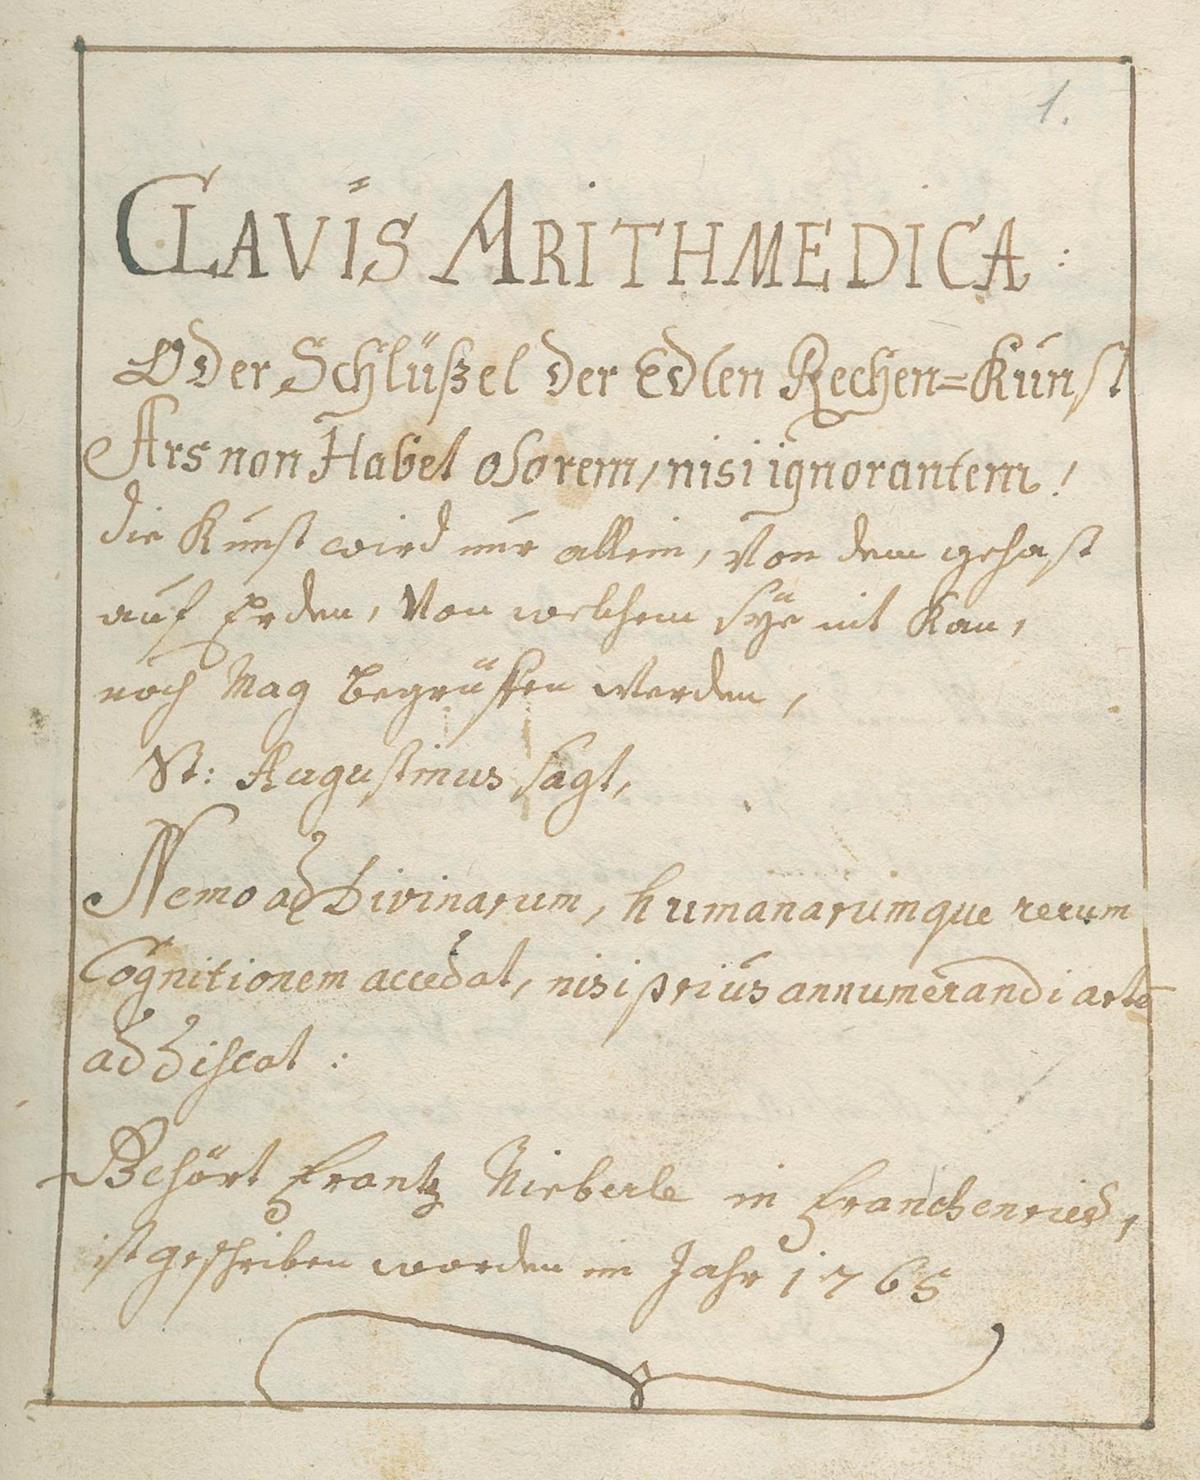 1.
CLAVIS ARITHMEDICA:
Oder Schlüßel der Edlen Rechen=Kunst
Ars non Habet osorem, nisi ignorantem!
die Kunst wird nur allein, Von dem gehast
auf Erden, Von welchem sÿe nit Kan,
noch Mag begrüffen werden,
St: Augustinus sagt,
Nemo ad Divinarum, humanarumque rerum
Cognitionem accedat, nisi prius annumerandi artē
addiscat:
Gehört Frantz Nieberle in Franckenried,
ist geschriben worden im Jahr 1765